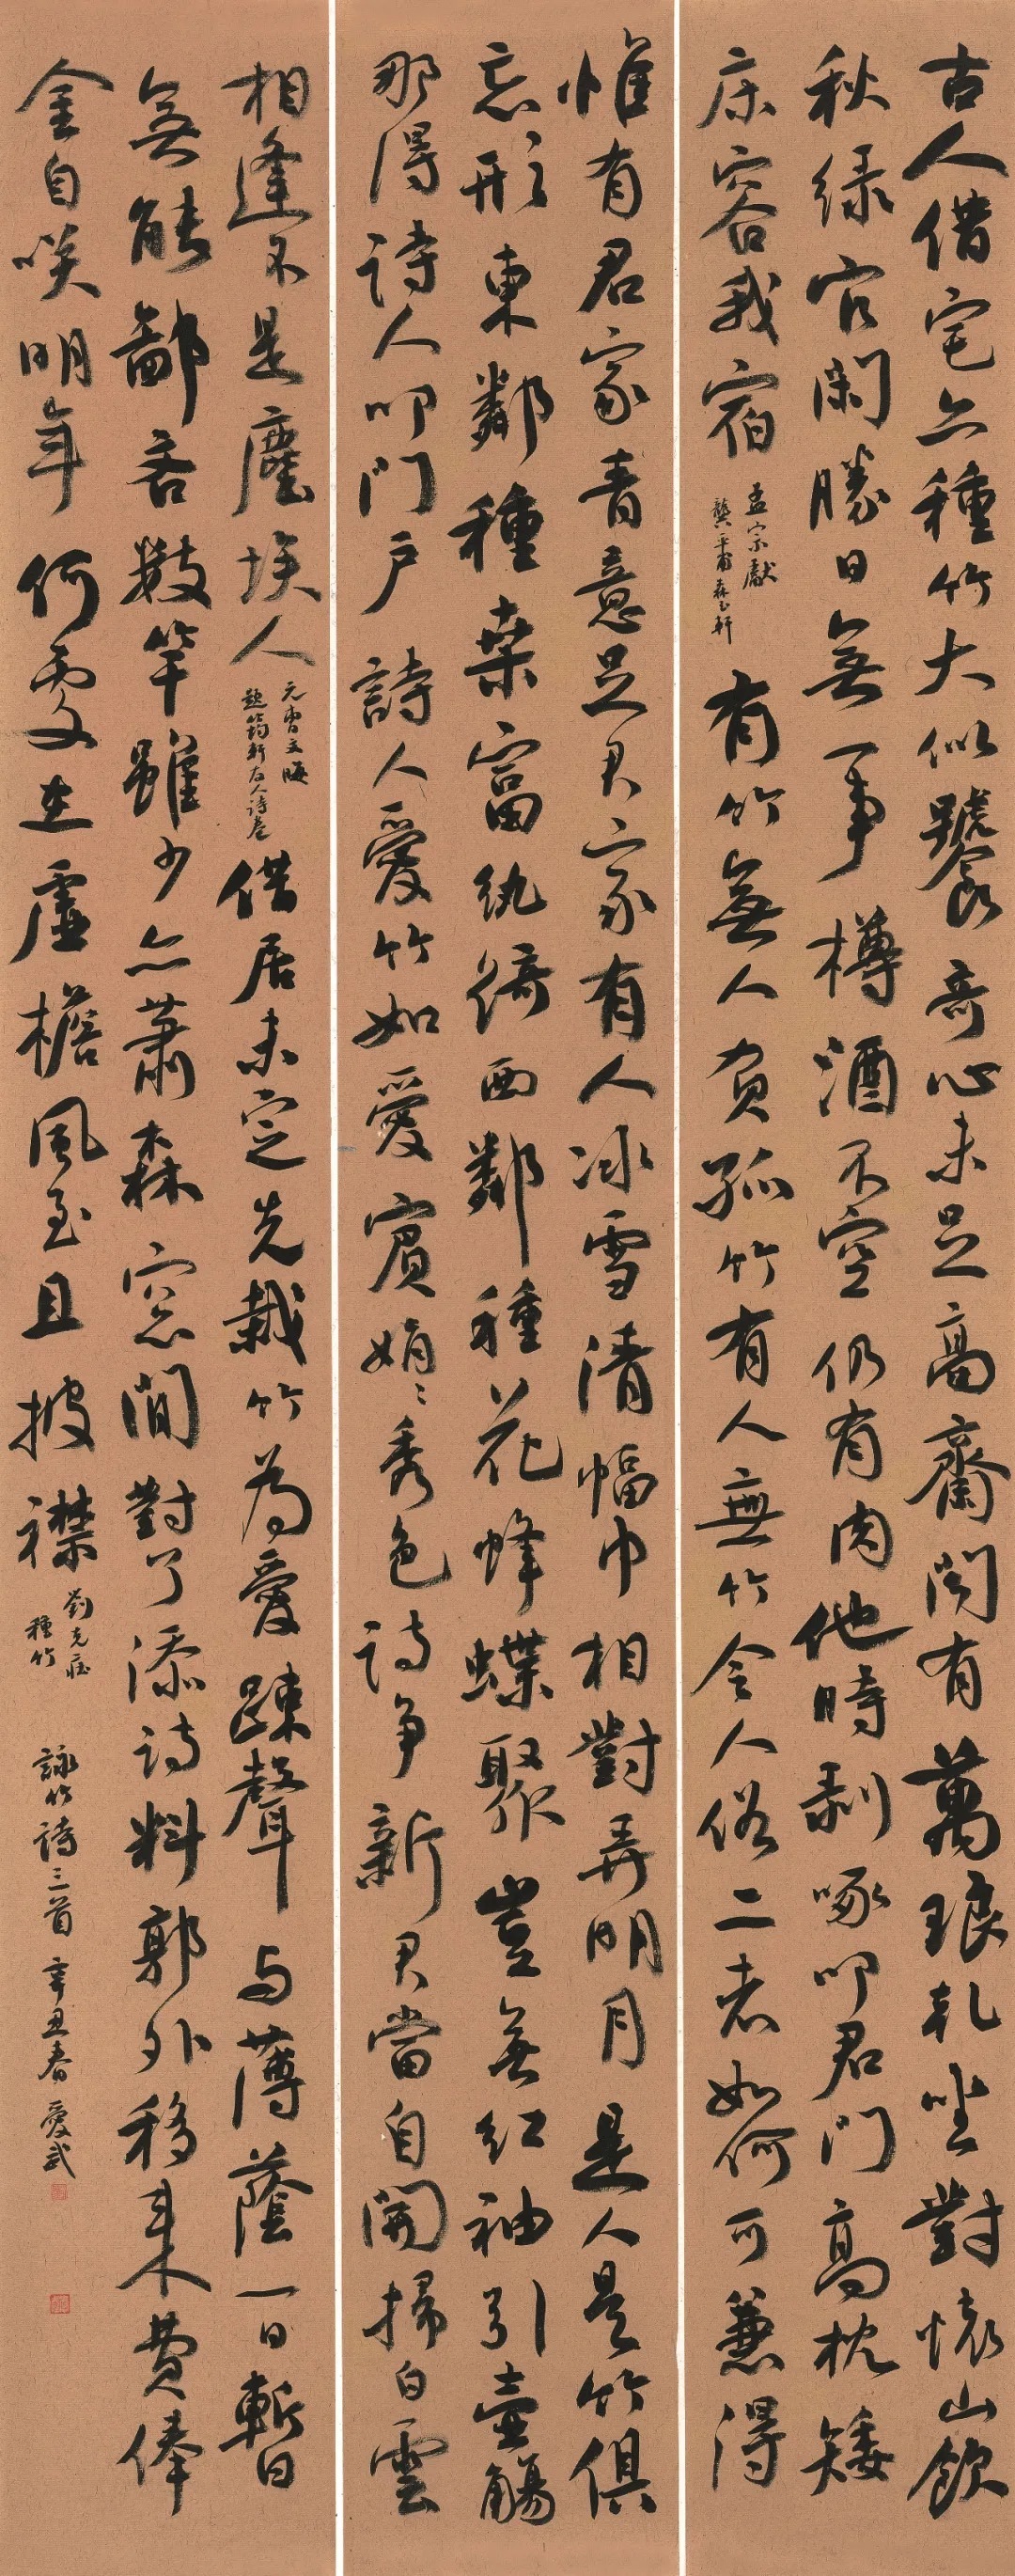 古人借宅亦種竹大似饕餮奇心未足高齋闻有萬琅玕坐對懷山飲
秋绿官閑勝日無一事樽酒不空仍有肉他時剥啄叩君門高枕矮
床容我宿
孟宗獻
龔平甫森玉軒
有竹無人竹負孤竹有人無竹令人俗二老如何可兼得
惟有君家青意足君家有人冰雪清幅巾相對弄明月是人是竹俱
忘形東鄰種桑富紈綺西鄰種花蜂蝶聚豈無红袖引壺觴
那得诗人叩門户詩人愛竹如愛賓娟〻秀色诗争新君當自開掃白雲
相逢不是塵埃人
元曹文晦
題筠軒友人诗卷
借居未定先栽竹為愛踈聲与薄蔭一日暫日
無能鄙吝數竿雖少亦蕭森窓間對了添诗料郭外移来費俸
金自笑明年何處在虚檐風至且披襟
劉克莊
種竹
詠竹詩三首 辛丑春 愛武